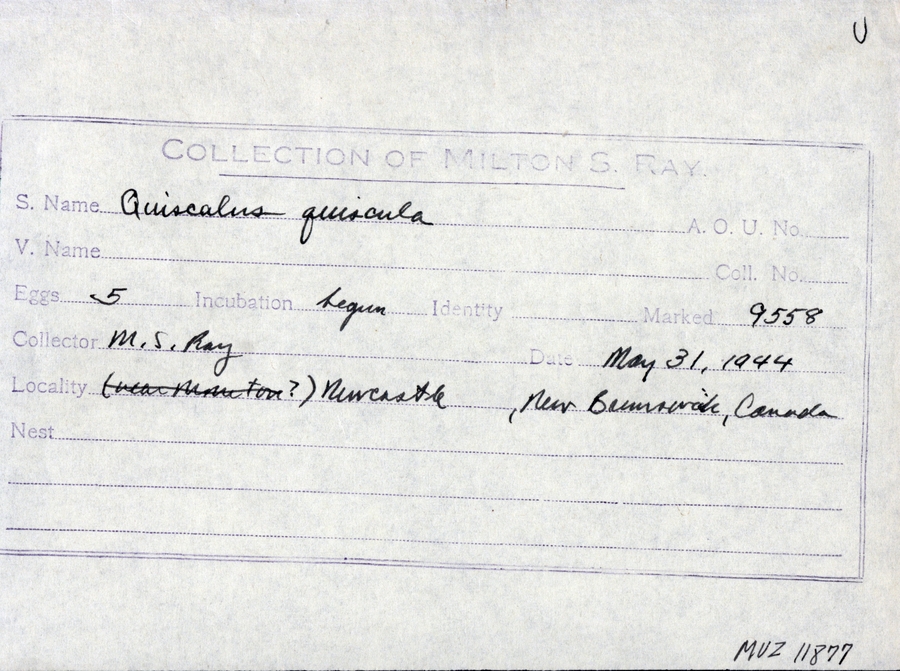 U
COLLECTION OF MILTON S. RAY.
S. Name Quiscalus quiscula A. O. U. No.
V. Name Coll. No.
Eggs 5 Incubation begun Identity Marked 9558
Collector M. S. Ray Date May 31, 1944
Locality (near Moncton?) Newcastle, New Brunswick, Canada
Nest
MVZ 11877